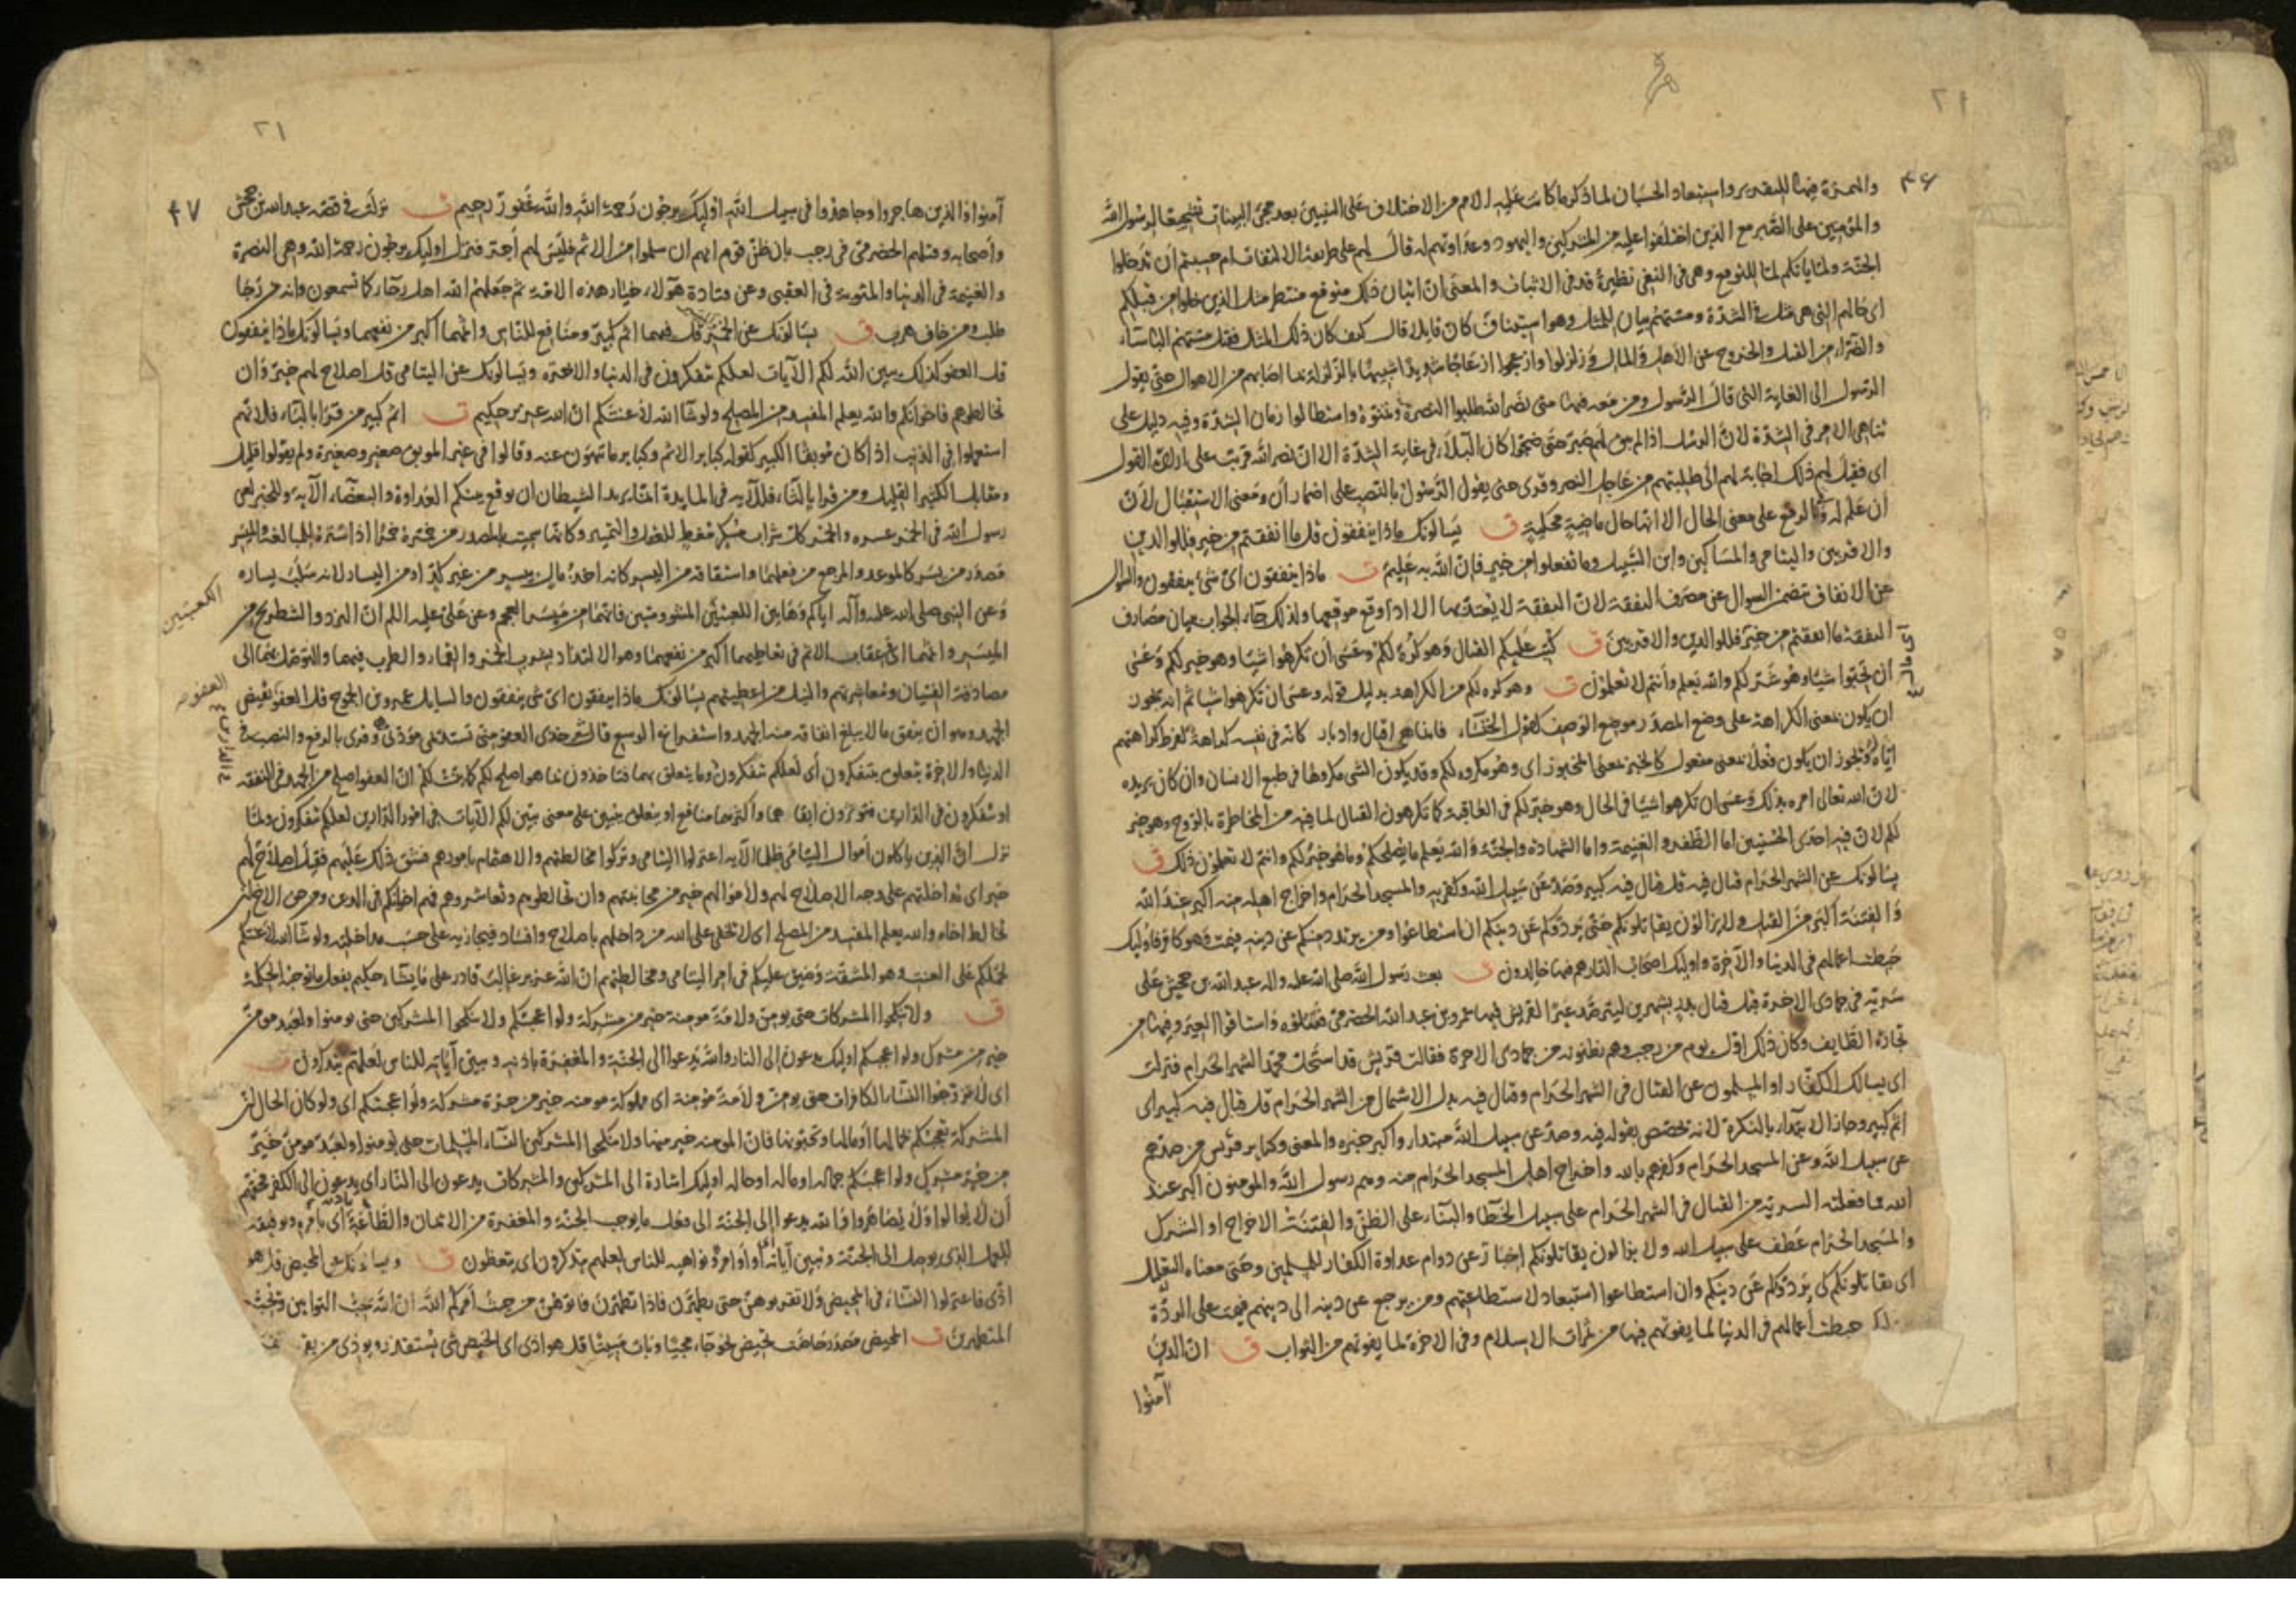 ٢١
٤٦
والهمزة فيها للتقرير واستبعاد الحسبان لما ذكر ما كانت عليه الامم من الاختلاف على النبيين بعد مجئ البينات تشجيعا لرسول الله
والمؤمنين على الصبر مع الذين اختلفوا عليه من المشركين واليهود وعداوتهم له قال لهم على طريقة الالتفات ام حسبتم أن تدخلوا
الجنة ولما يأتكم لما للتوقع وهى فى النفى نظيرة قد فى الاثبات والمعنى ان اتيان ذلك متوقع منتظر مثل الذين خلوا من قبلكم
اى حالهم التى هى مثل فى الشدة ومستهم بيان للمثل وهو استيناف كان قايلا قال كيف كان ذلك المثل فقيل مستهم البأساء
والضراء من القتل والخروج عن الأهل والمال وزلزلوا وازعجوا ازعاجا شديدا شبيها بالزلزلة بما اصابهم من الاهوال حتى يقول
الرسول الى الغاية التى قال الرسول ومن معه فيها متى نصر الله طلبوا النصرة وتمنوه واستطالوا زمان الشدة وفيه دليل على
تناهى الامر فى الشدة لأن الرسل اذا لم يبق لهم صبر حتى ضجوا كان البلاء فى غاية الشدة الا ان نصر الله قريب على ارادة القول
اى فقيل لهم ذلك اجابة لهم الى طلبتهم من عاجل النصر وقرى حتى يقول الرسول بالنصب على اضمار أن ومعنى الاستقبال لأن
أن علم له وبالرفع على معنى الحال الا انها حال ماضية محكية ق يسألونك ماذا ينفقون قل ما انفقتم من خير فللوالدين
والاقربين واليتامى والمساكين وابن السبيل وما تفعلوا من خير فإن الله به عليم ت ماذا ينفقون اى شئ ينفقون والسؤال
عن الانفاق يتضمن السؤال عن مصرف النفقة لان النفقة لا يعتد بها الا اذا وقع موقعها ولذلك جاء الجواب ببيان مصارف
النفقة ما انفقتم من خير فللوالدين والاقربين ق كتب عليكم القتال وهو كره لكم وعسى أن تكرهوا شيئا وهو خير لكم وعسى
ان تحبوا شيئا وهو شر لكم والله يعلم وأنتم لا تعلمون ت وهو كره لكم من الكراهة بدليل قوله وعسى ان تكرهوا شيئا ثم انه يجوز
ان يكون بمعنى الكراهة على وضع المصدر موضع الوصف كقول الخنساء فانما هى اقبال وادبار كانه فى نفسه كراهة لفرط كراهتهم
اياه ويجوز ان يكون فعل بمعنى مفعول كالخبز بمعنى المخبوز اى وهو مكروه لكم وقد يكون الشى مكروها فى طبع الانسان وان كان يريده
لان الله تعالى امره بذلك وعسى ان تكرهوا شيئا فى الحال وهو خير لكم فى العاقبة كما تكرهون القتال لما فيه من المخاطرة بالروح وهو خير
لكم لان فيه احدى الحسنيين اما الظفر والغنيمة واما الشهادة والجنة والله يعلم ما يصلحكم وما هو خير لكم وانتم لا تعلمون ذلك ق
يسألونك عن الشهر الحرام قتال فيه قل قتال فيه كبير وصد عن سبيل الله وكفر به والمسجد الحرام واخراج اهله منه اكبر عند الله
والفتنة اكبر من القتل ولا يزالون يقاتلونكم حتى يردوكم عن دينكم ان استطاعوا ومن يرتدد منكم عن دينه فيمت وهو كافر فاولئك
حبطت اعمالهم فى الدنيا والآخرة واولئك اصحاب النار هم فيها خالدون ت بعث رسول الله صلى الله عليه واله عبد الله بن جحش على
سرية فى جمادى الاخرة قبل قتال بدر بشهرين ليترصد عيرا لقريش فيها عمرو بن عبد الله الحضرمى فقتلوه واستاقوا العير وفيها من
تجارة الطايف وكان ذلك اول يوم من رجب وهم يظنونه من جمادى الاخرة فقالت قريش قد استحل محمد الشهر الحرام فنزلت
اى يسالك الكفار او المسلمون عن القتال فى الشهر الحرام وقتال فيه بدل الاشتمال من الشهر الحرام قل قتال فيه كبير اى
اثم كبير وجاز الابتداء بالنكرة لانه تخصص بقوله فيه وصد عن سبيل الله مبتدا واكبر خبره والمعنى وكباير قريش من صدهم
عن سبيل الله وعن المسجد الحرام وكفرهم بالله واخراج اهل المسجد الحرام منه وهم رسول الله والمومنون اكبر عند
الله مما فعلته السرية من القتال فى الشهر الحرام على سبيل الخطأ والبناء على الظن والفتنة الاخراج او الشرك
والمسجد الحرام عطف على سبيل الله ولا يزالون يقاتلونكم اخبار عن دوام عداوة الكفار للمسلمين وحتى معناه التعليل
اى يقاتلونكم كى يردوكم عن دينكم وان استطاعوا استبعاد لاستطاعتهم ومن يرجع عن دينه الى دينهم فيمت على الردة
حبطت أعمالهم فى الدنيا لما يفوتهم فيها من ثمرات الاسلام وفى الاخرة لما يفوتهم من الثواب ق ان الذين
آمنوا
٢١
٤٧
آمنوا والذين هاجروا وجاهدوا فى سبيل الله اولئك يرجون رحمة الله والله غفور رحيم ت نزلت فى قصة عبد الله بن جحش
واصحابه وقتلهم الحضرمى فى رجب بان ظن قوم انهم ان سلموا من الاثم فليس لهم أجر فنزل اولئك يرجون رحمة الله وهى النصرة
والغنيمة فى الدنيا والمثوبة فى العقبى وعن قتادة هؤلاء خيار هذه الامة ثم جعلهم الله اهل رجاء كما تسمعون وانه من رجا
طلب ومن خاف هرب ق يسألونك عن الخمر قل فيهما اثم كبير ومنافع للناس واثمهما اكبر من نفعهما ويسألونك ماذا ينفقون
قل العفو كذلك يبين الله لكم الآيات لعلكم تتفكرون فى الدنيا والاخرة ويسألونك عن اليتامى قل اصلاح لهم خير وان
تخالطوهم فاخوانكم والله يعلم المفسد من المصلح ولو شاء الله لأعنتكم ان الله عزيز حكيم ت اثم كبير من قرأ بالباء فلانهم
استعملوا فى الذنب اذا كان موبقا الكبير كقوله كباير الاثم وكباير ما تنهون عنه وقالوا فى غير الموبق صغير وصغيرة ولم يقولوا قليل
ومقابل الكثير القليل ومن قرا بالثاء فللآية فى المايدة انما يريد الشيطان ان يوقع بينكم العداوة والبغضاء الآية وللخبر لعن
رسول الله فى الخمر عشره والخمر كل شراب مسكر مغط للعقل والتمييز وكانها سميت بالمصدر من خمره خمرا اذا ستره للمبالغة والميسر
مصدر من يسر كالموعد والمرجع من فعلهما واشتقاقه من اليسر كانه اخذ مال بيسر من غير كد او من اليسار لانه سلب يساره
وعن النبى صلى الله عليه وآله اياكم وهاتين اللعبتين المشؤومتين فانهما من ميسر العجم وعن على عليه السلم ان النرد والشطرنج من
الميسر واثمهما اى عقاب الاثم فى تعاطيهما اكبر من نفعهما وهو الالتذاذ بشرب الخمر والقمار والطرب فيهما والتوصل بهما الى
مصادقة الفتيان ومعاشرتهم والنيل من اعطيتهم يسالونك ماذا ينفقون اى شى ينفقون والسايل عمرو بن الجموح قل العفو نقيض
الجهد وهو ان ينفق ما لا يبلغ انفاقه منه الجهد واستفراغ الوسع قال شعر خذى العفو منى تستديمى مودتى وقرى بالرفع والنصب فى
الدنيا والاخرة يتعلق بتتفكرون أى لعلكم تتفكرون وما يتعلق بهما فتاخذون بما هو اصلح لكم كما بينت لكم ان العفو اصلح من الجهد فى النفقة
او تتفكرون فى الدارين فتؤثرون ابقاهما واكثرهما منافع او يتعلق بيبين على معنى يبين لكم الآيات فى امور الدارين لعلكم تتفكرون ولما
نزل ان الذين ياكلون أموال اليتامى ظلما الآية اعتزلوا اليتامى وتركوا مخالطتهم والاهتمام بامورهم فشق ذلك عليهم فقيل اصلاح لهم
خير اى مداخلتهم على وجه الاصلاح لهم ولأموالهم خير من مجانبتهم وان تخالطوهم وتعاشروهم فهم اخوانكم فى الدين ومن حق الاخ ان
تخالط اخاه والله يعلم المفسد من المصلح اى لا تخفى على الله من داخلهم باصلاح وافساد فيجازيه على حسب مداخلته ولو شاء الله لأعنتكم
لحملكم على العنت وهو المشقة وضيق عليكم فى امر اليتامى ومخالطتهم ان الله عزيز غالب قادر على ما يشاء حكيم يفعل ما توجبه الحكمة
ق ولا تنكحوا المشركات حتى يومن ولامة مومنة خير من مشركة ولو اعجبتكم ولا تنكحوا المشركين حتى يومنوا ولعبد مومن
خير من مشرك ولو اعجبكم اولئك يدعون الى النار والله يدعوا الى الجنة والمغفرة باذنه ويبين آياته للناس لعلهم يتذكرون ت
اى لا تتزوجوا النساء الكافرات حتى يومن ولأمة مؤمنة اى مملوكة مومنة خير من حرة مشركة ولو اعجبتكم اى ولو كان الحال ان
المشركة تعجبكم بمالها أو جمالها وتحبونها فان المومنة خير منها ولا تنكحوا المشركين النساء المسلمات حتى يومنوا ولعبد مومن خير
من حر مشرك ولو اعجبكم جماله او ماله او حاله اولئك اشارة الى المشركين والمشركات يدعون الى النار اى يدعون الى الكفر فحقهم
أن لا يوالوا ولا يصاهروا والله يدعوا إلى الجنة الى فعل ما يوجب الجنة والمغفرة من الايمان والطاعة باذنه اى بامره وتوفيقه
للعمل الذى يوصل الى الجنة ويبين آياته اى أوامره ونواهيه للناس لعلهم يتذكرون اى يتعظون ق ويسألونك عن المحيض قل هو
اذى فاعتزلوا النساء فى المحيض ولا تقربوهن حتى يطهرن فاذا تطهرن فاتوهن من حيث أمركم الله ان الله يحب التوابين ويحب
المتطهرين ت المحيض مصدر حاضت تحيض نحو جاء مجيئا وبات مبيتا قل هو اذى اى الحيض شى يستقذر ويوذى من يقربه
الكعبتين